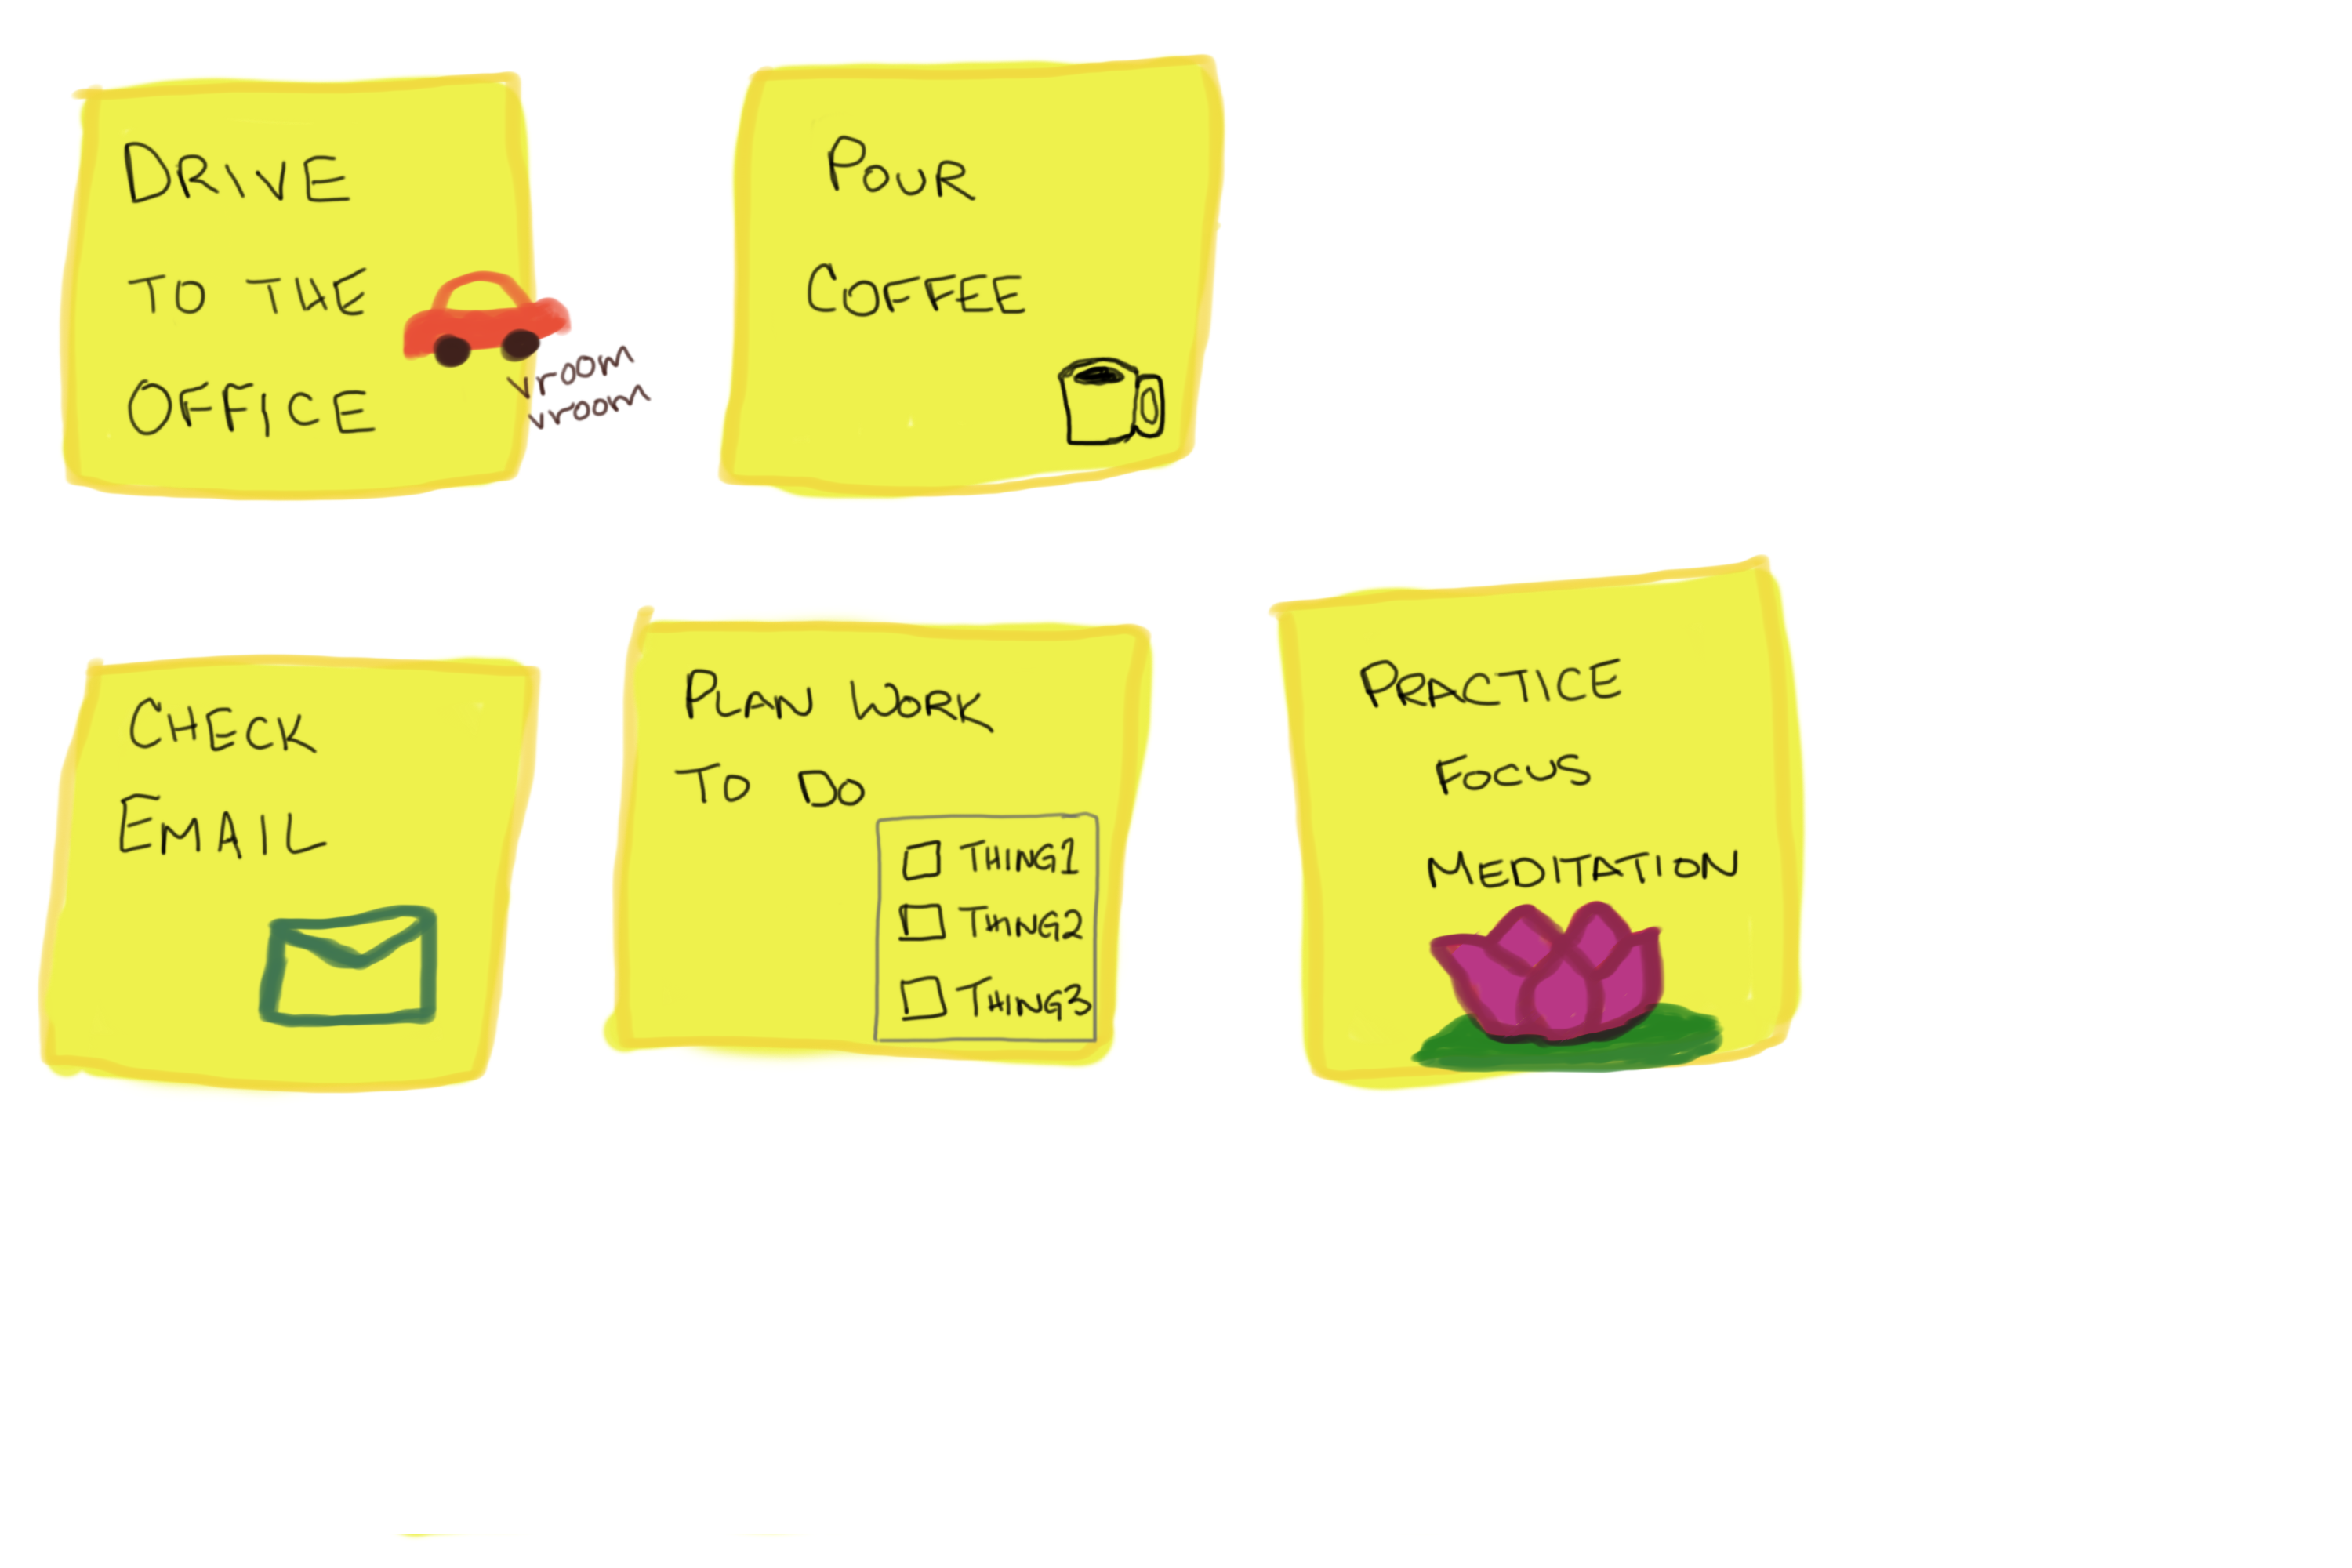 DRIVE
TO THE
OFFICE
vroom
vroom
POUR
COFFEE
CHECK
EMAIL
PLAN WORK
TO DO
THING1
THING2
THING3
PRACTICE
FOCUS
MEDITATION